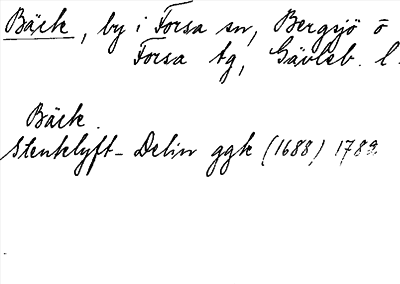 Bäck, by i Forsa sn, Bergsjö ö
Forsa tg, Gävleb. l.
Bäck.
Stenklyft-Delin ggk (1688) 1789